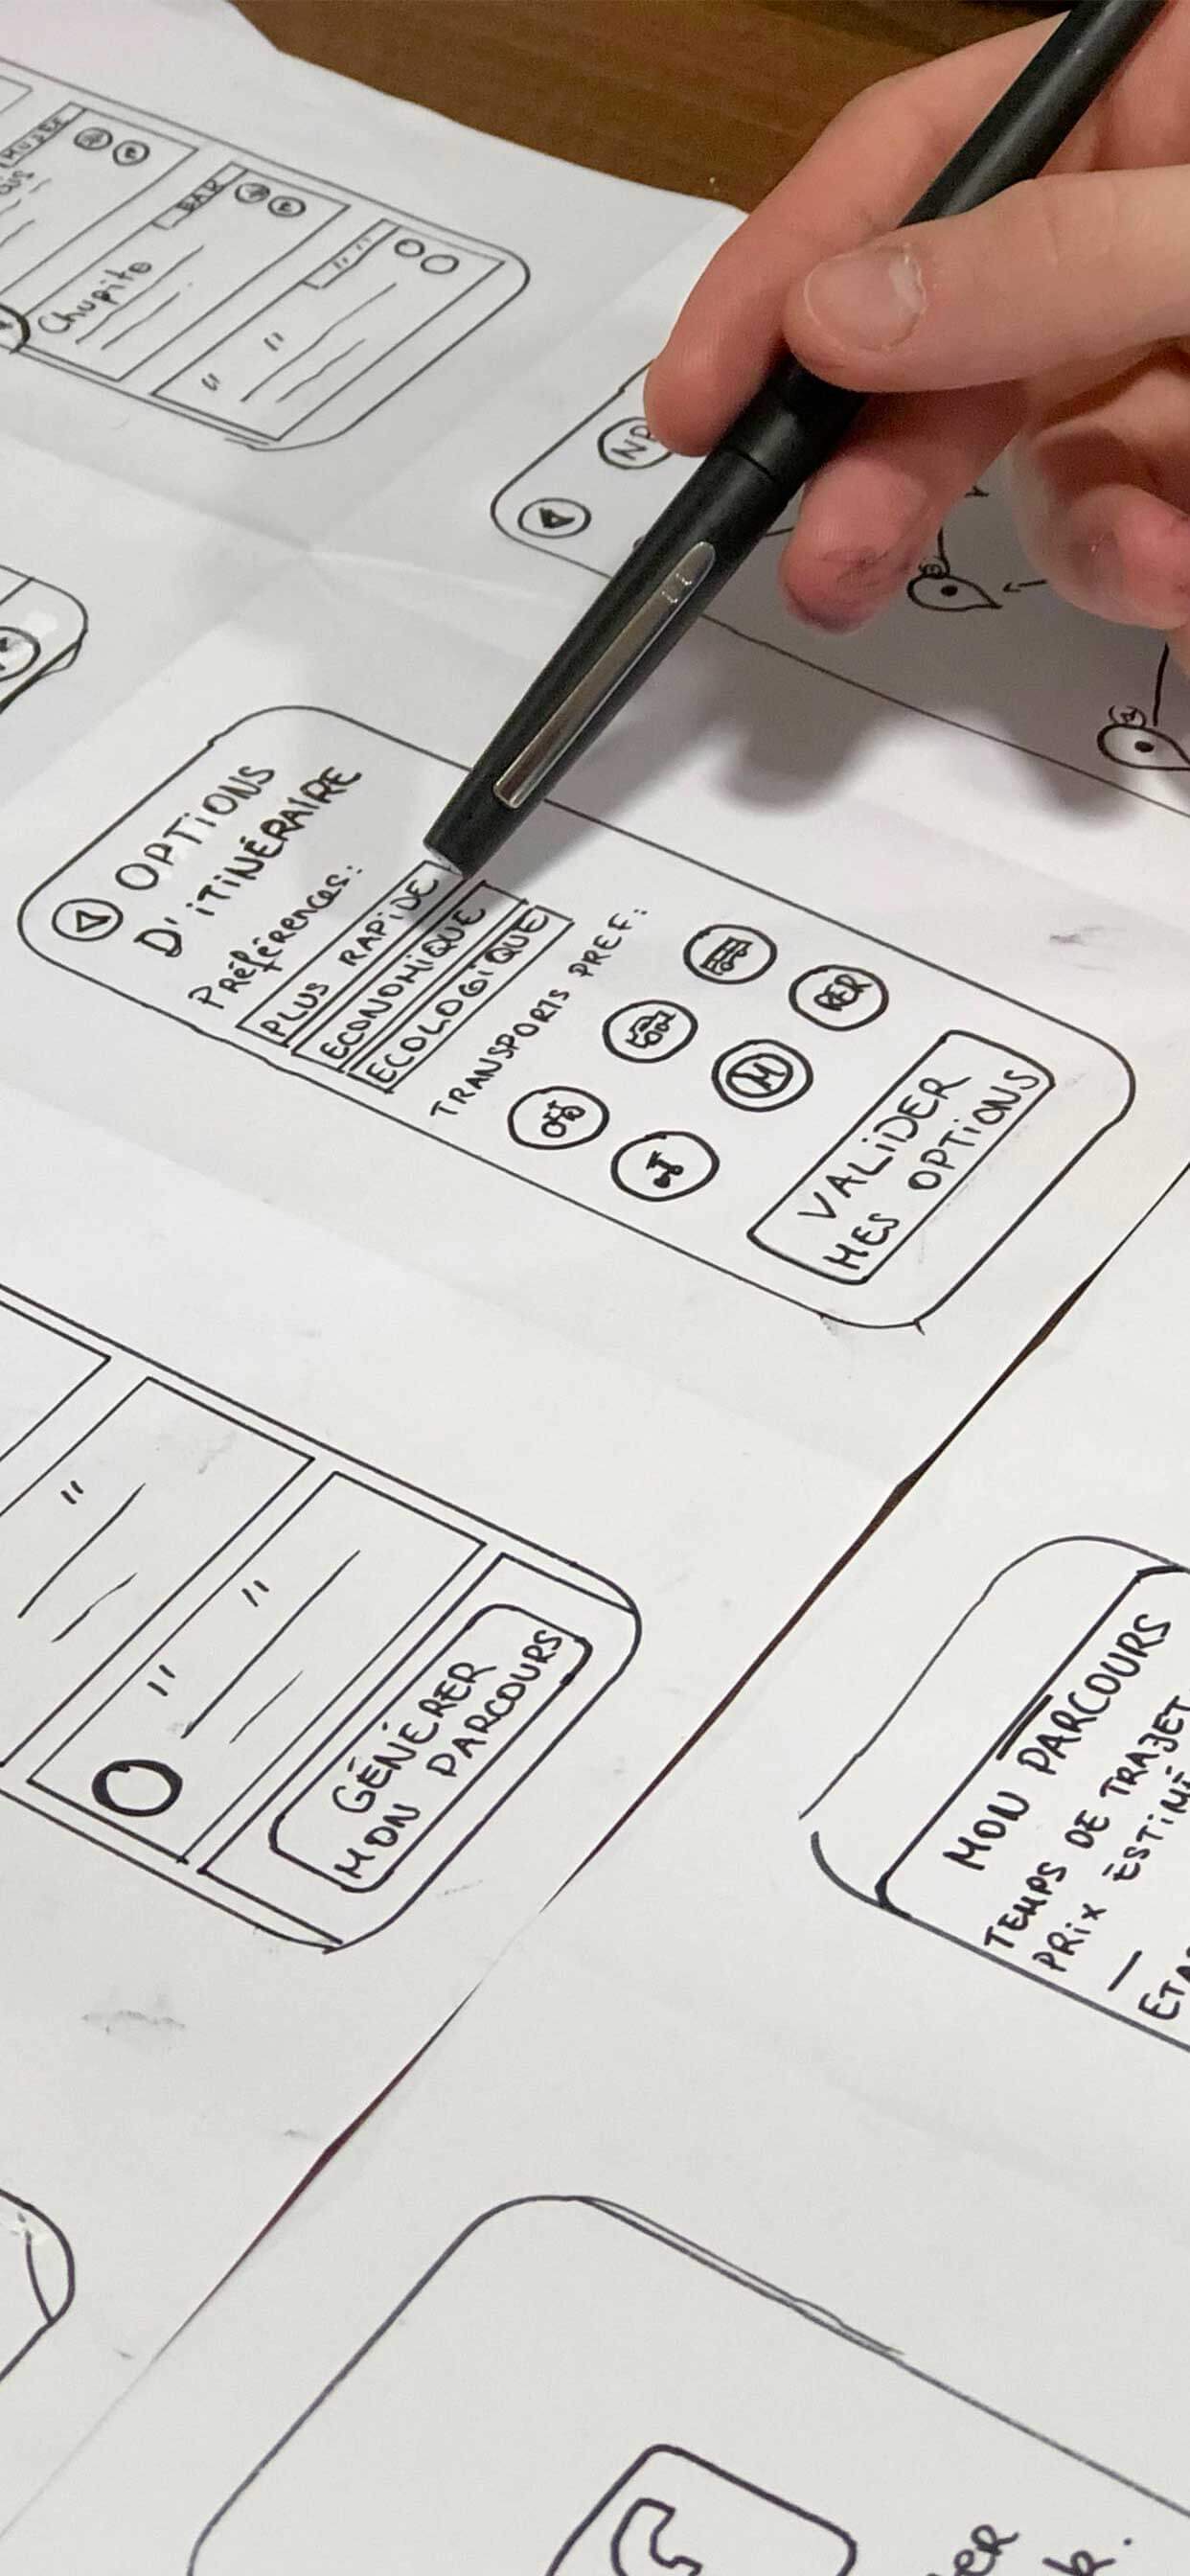 BAR
Chupito
OPTIONS
D'ITINÉRAIRE
Préférences:
PLUS RAPIDE
ECONOMIQUE
ECOLOGIQUE
TRANSPORTS PREF:
RER
M
VALIDER
MES OPTIONS
GÉNÉRER
MON PARCOURS
MON PARCOURS
TEMPS DE TRAJET
PRIX ESTIMÉ